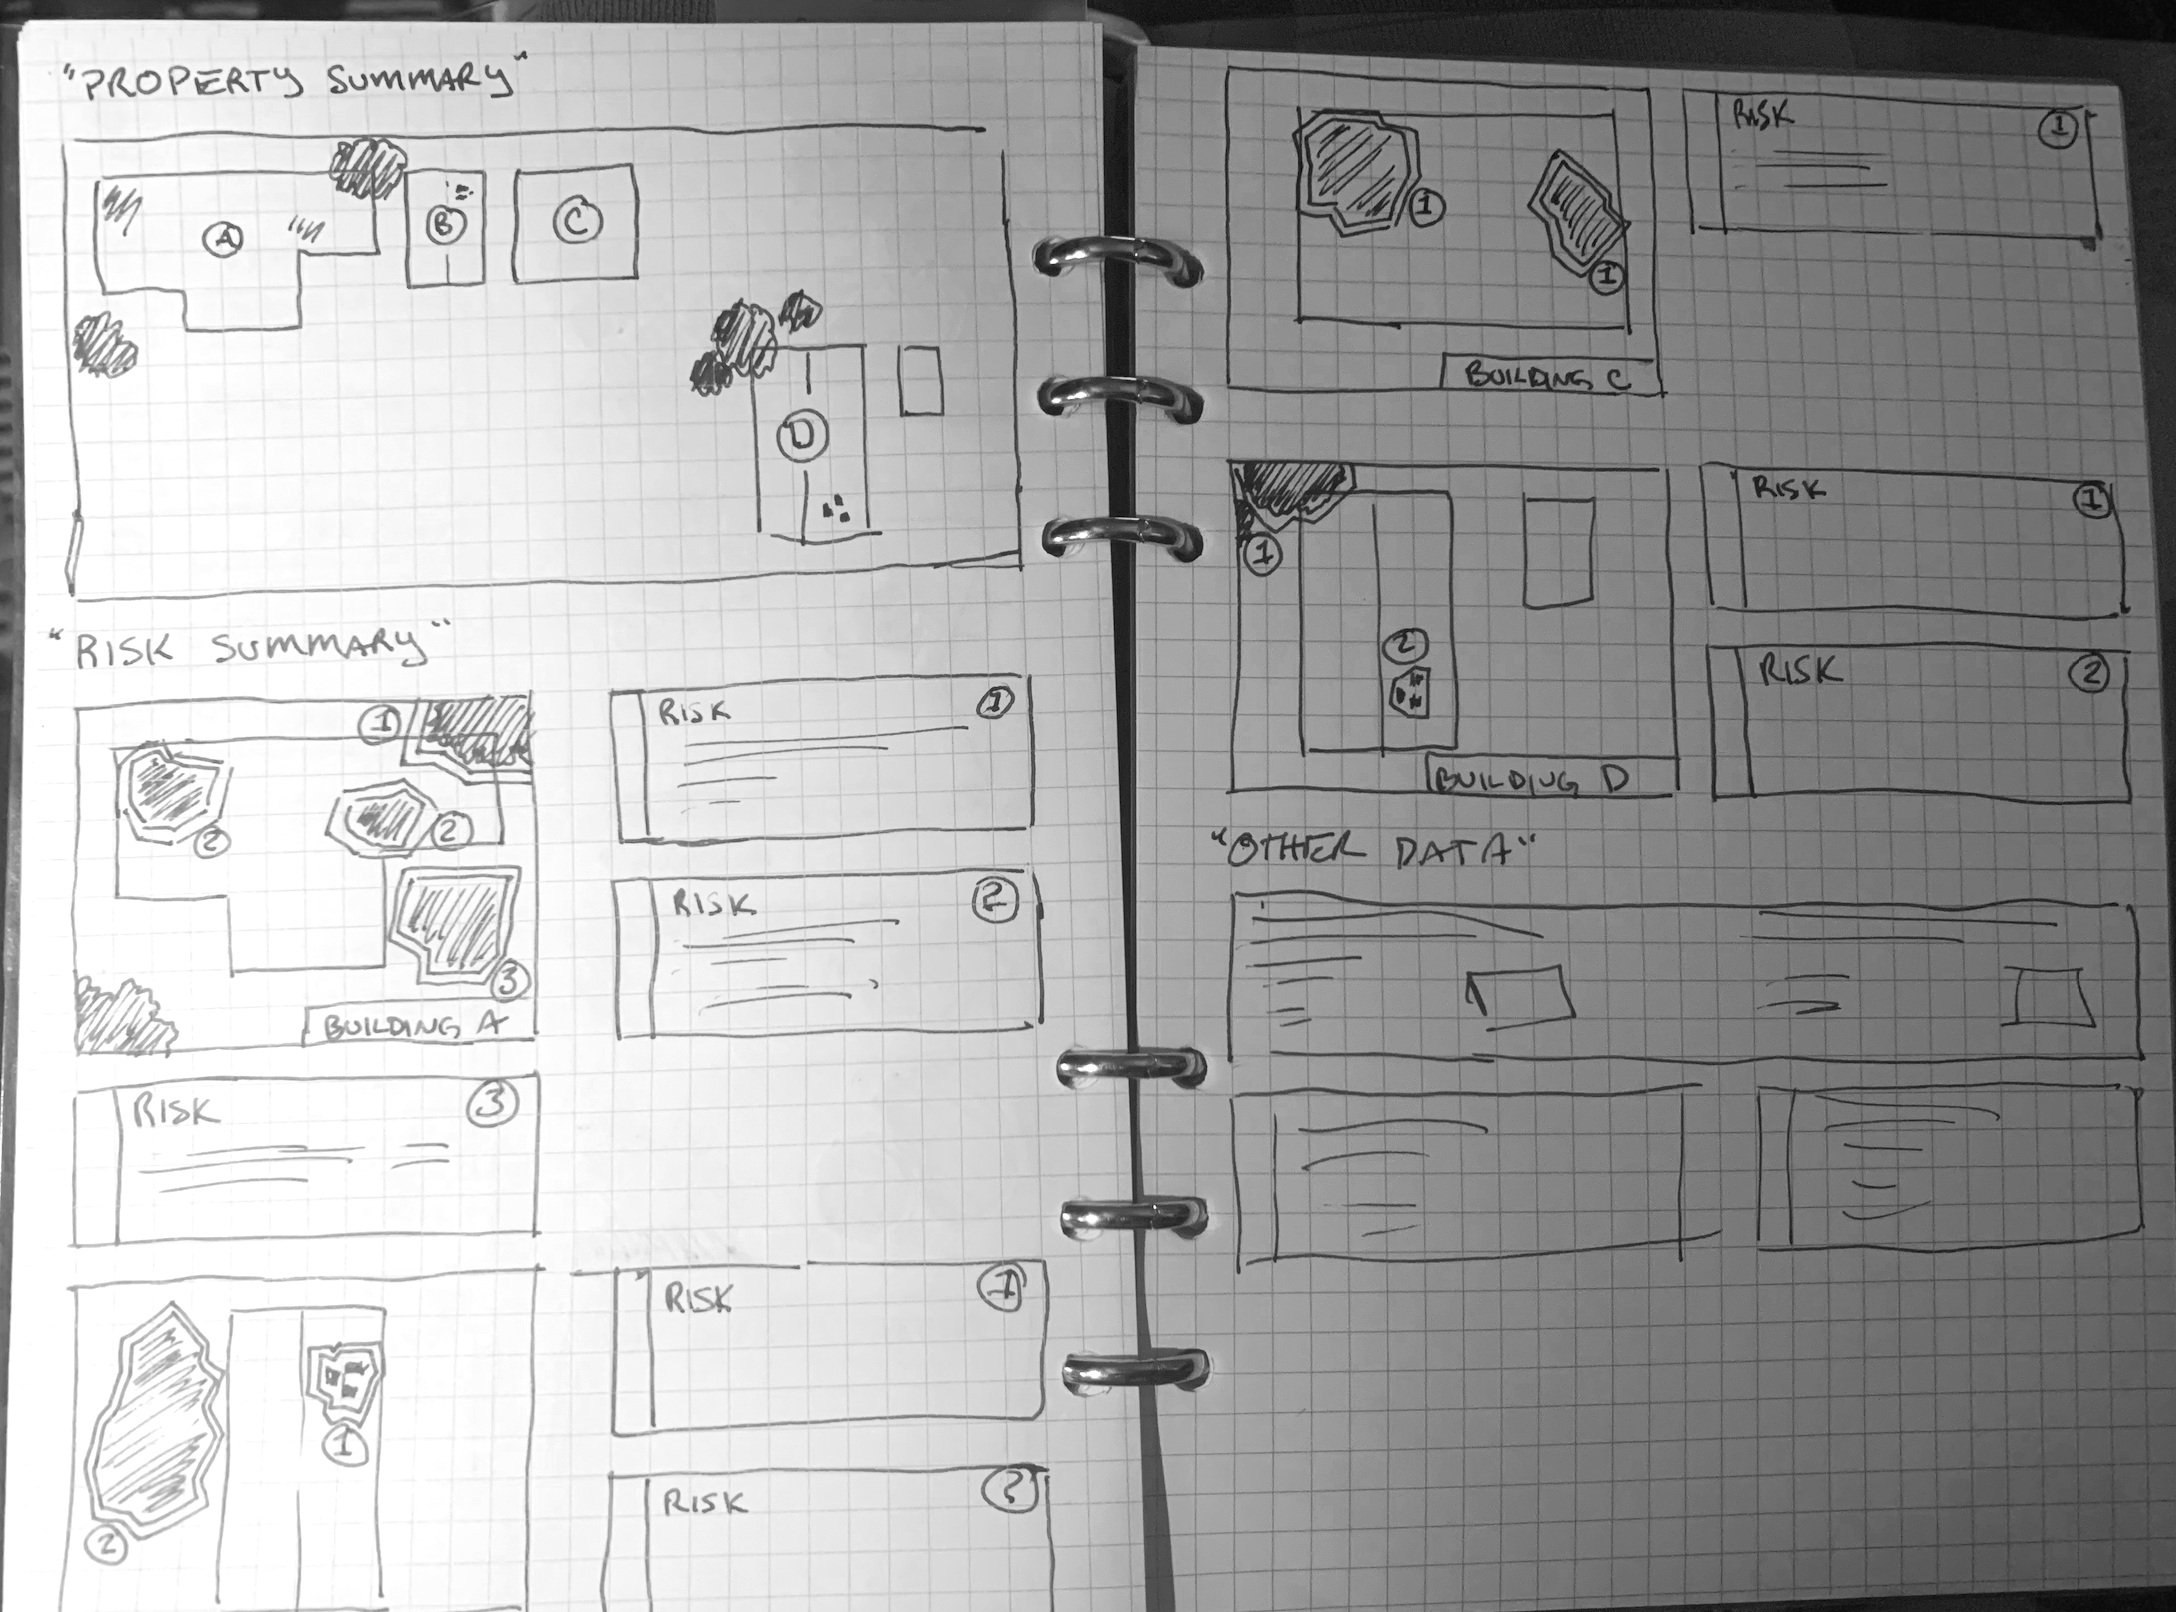 "PROPERTY SUMMARY"
A
B
C
D
"RISK SUMMARY"
1
2
2
3
BUILDING A
RISK 1
RISK 2
RISK 3
1
2
RISK 1
RISK 2
1
1
BUILDING C
RISK 1
1
2
BUILDING D
RISK 1
RISK 2
"OTHER DATA"